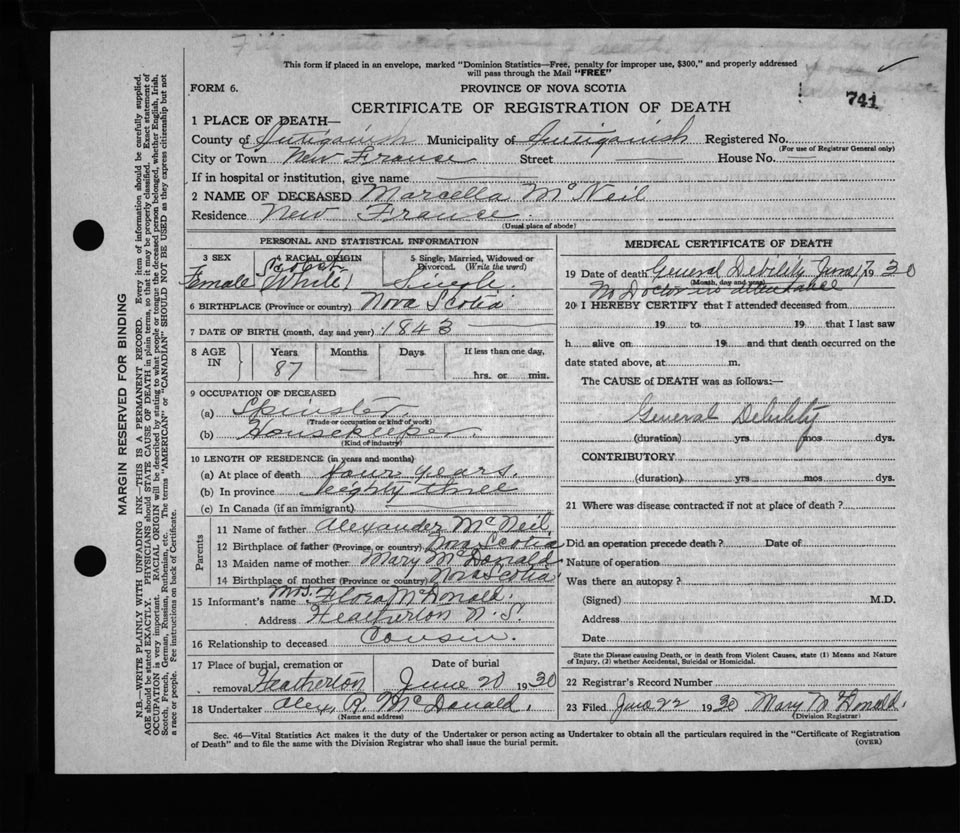 Fill in date of death.
This form if placed in an envelope, marked "Dominion Statistics—Free, penalty for improper use, $300," and properly addressed
will pass through the Mail "FREE"
FORM 6.
PROVINCE OF NOVA SCOTIA
741
CERTIFICATE OF REGISTRATION OF DEATH
1 PLACE OF DEATH—
County of Antigonish Municipality of Antigonish Registered No.
(For use of Registrar General only)
City or Town New France Street — House No. —
If in hospital or institution, give name —
2 NAME OF DECEASED Marcella McNeil
Residence New France
(Usual place of abode)
PERSONAL AND STATISTICAL INFORMATION
3 SEX 4 RACIAL ORIGIN 5 Single, Married, Widowed or Divorced. (Write the word)
Female Scotch (White) Single.
6 BIRTHPLACE (Province or country) Nova Scotia
7 DATE OF BIRTH (month, day and year) 1843 —
8 AGE IN Years Months Days If less than one day,
87 — — hrs. or min.
9 OCCUPATION OF DECEASED
(a) Spinster.
(Trade or occupation or kind of work)
(b) Housekeeper.
(Kind of industry)
10 LENGTH OF RESIDENCE (in years and months)
(a) At place of death four years.
(b) In province eighty three
(c) In Canada (if an immigrant) —
Parents
11 Name of father Alexander McNeil
12 Birthplace of father (Province or country) Nova Scotia
13 Maiden name of mother Mary McDonald
14 Birthplace of mother (Province or country) Nova Scotia
15 Informant's name Mrs. Flora McDonald.
Address Heatherton N.S.
16 Relationship to deceased Cousin.
17 Place of burial, cremation or removal Heatherton Date of burial June 20 1930
18 Undertaker Alex. R. McDonald.
(Name and address)
MEDICAL CERTIFICATE OF DEATH
19 Date of death General Debility June 17 1930
(Month, day and year)
No Doctor in attendance
20 I HEREBY CERTIFY that I attended deceased from
19 to 19 that I last saw
h alive on 19 and that death occurred on the
date stated above, at m.
The CAUSE of DEATH was as follows:—
General Debility
(duration) yrs mos dys.
CONTRIBUTORY
(duration) yrs mos dys.
21 Where was disease contracted if not at place of death?
Did an operation precede death? Date of
Nature of operation
Was there an autopsy?
(Signed) M.D.
Address
Date
State the Disease causing Death, or in death from Violent Causes, state (1) Means and Nature
of Injury, (2) whether Accidental, Suicidal or Homicidal.
22 Registrar's Record Number
23 Filed June 22 1930 Mary McDonald.
(Division Registrar)
Sec. 46—Vital Statistics Act makes it the duty of the Undertaker or person acting as Undertaker to obtain all the particulars required in the "Certificate of Registration
of Death" and to file the same with the Division Registrar who shall issue the burial permit. (OVER)
MARGIN RESERVED FOR BINDING
N.B.—WRITE PLAINLY WITH UNFADING INK—THIS IS A PERMANENT RECORD. Every item of information should be carefully supplied.
AGE should be stated EXACTLY. PHYSICIANS should STATE CAUSE OF DEATH in plain terms, so that it may be properly classified. Exact statement of
OCCUPATION is very important. RACIAL ORIGIN will be described by stating to what people or tongue the deceased person belonged, whether English, Irish,
Scotch, French, German, Russian, Ruthenian, etc. The terms "AMERICAN" or "CANADIAN" SHOULD NOT BE USED as they express citizenship but not
a race or people. Fee instructions on back of Certificate.